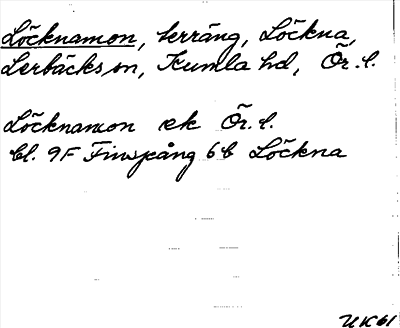 Löcknamon, terräng, Löckna,
Lerbäcks sn, Kumla hd, Ör. l.
Löcknamon ek Ör. l.
bl. 9F Finspång 6b Löckna
UK61